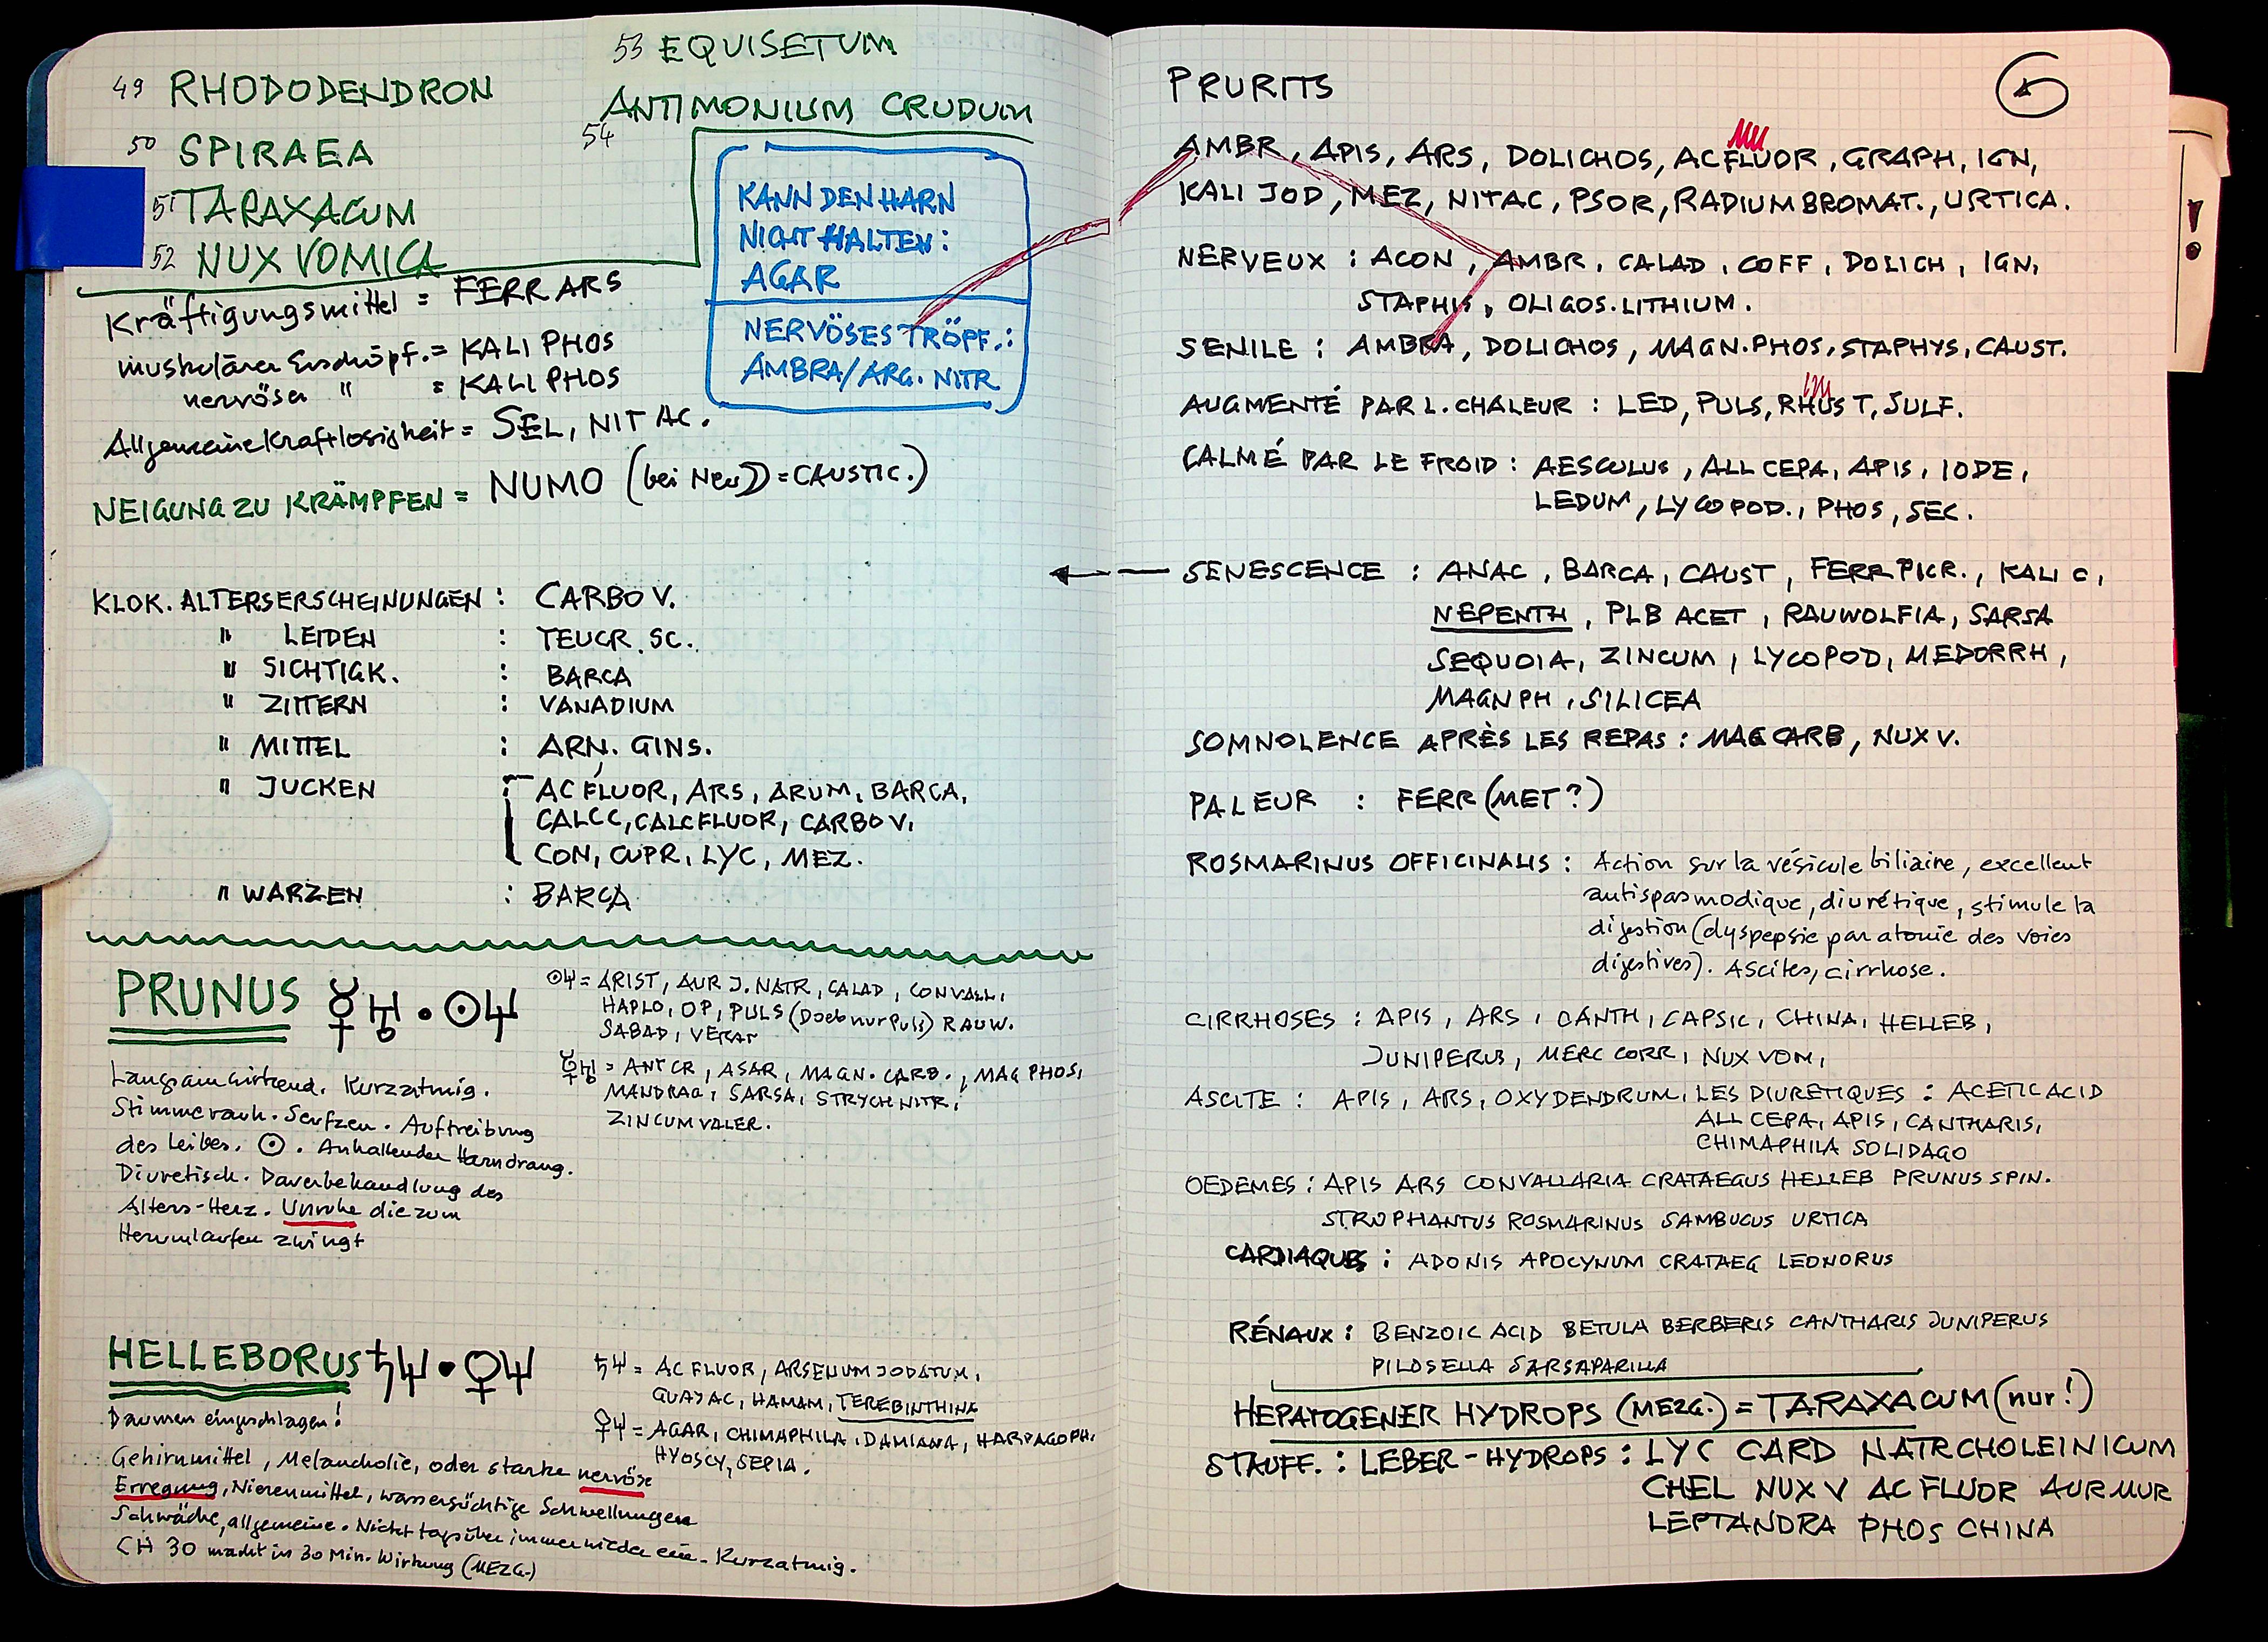 49 RHODODENDRON
50 SPIRAEA
51 TARAXACUM
52 NUX VOMICA
53 EQUISETUM
54 ANTIMONIUM CRUDUM
KANN DEN HARN
NICHT HALTEN:
AGAR
NERVÖSES TRÖPF.:
AMBRA/ARG. NITR
Kräftigungsmittel = FERR ARS
muskulärer Erschöpf. = KALI PHOS
nervöser " = KALI PHOS
Allgemeine Kraftlosigkeit = SEL, NIT AC.
NEIGUNG ZU KRÄMPFEN = NUMO (bei = CAUSTIC.)
KLOK. ALTERSERSCHEINUNGEN : CARBO V.
" LEIDEN : TEUCR. SC.
" SICHTIGK. : BARCA
" ZITTERN : VANADIUM
" MITTEL : ARN. GINS.
" JUCKEN : AC FLUOR, ARS, ARUM, BARCA,
CALC C, CALC FLUOR, CARBO V,
CON, CUPR, LYC, MEZ.
" WARZEN : BARCA
PRUNUS ☿♅ • ☉♆
☉♆ = ARIST, AUR J. NATR, CALAD, CONVALL,
HAPLO, OP, PULS (Doch nur Puls) RAUW.
SABAD, VERAT
☿♅ = ANT CR, ASAR, MAGN. CARB., MAG PHOS,
MANDRAG, SARSA, STRYCH NITR,
ZINCUM VALER.
Langsam wirkend. Kurzatmig.
Stimme rauh. Seufzen. Auftreibung
des Leibes. ☉. Anhaltender Harndrang.
Diuretisch. Dauerbehandlung des
Alters-Herz. Unruhe die zum
Herumlaufen zwingt
HELLEBORUS ♄♆ • ♀♆
♄♆ = AC FLUOR, ARSENUM JODATUM,
GUAJAC, HAMAM, TEREBINTHINA
♀♆ = AGAR, CHIMAPHILA, DAMIANA, HARPAGOPH,
HYOSCY, SEPIA.
Daumen eingeschlagen!
Gehirnmittel, Melancholie, oder starke nervöse
Erregung, Nierenmittel, wassersüchtige Schwellungen
Schwäche, allgemeine. Nickt tagsüber immer wieder ein. Kurzatmig.
CH 30 macht in 30 Min. Wirkung (MEZG.)
PRURITS
AMBR, APIS, ARS, DOLICHOS, AC FLUOR, GRAPH, IGN,
KALI JOD, MEZ, NIT AC, PSOR, RADIUM BROMAT., URTICA.
NERVEUX : ACON, AMBR, CALAD, COFF, DOLICH, IGN,
STAPHIS, OLIGOS. LITHIUM.
SENILE : AMBRA, DOLICHOS, MAGN. PHOS, STAPHYS, CAUST.
AUGMENTÉ PAR L. CHALEUR : LED, PULS, RHUS T, SULF.
CALMÉ PAR LE FROID : AESCULUS, ALL CEPA, APIS, IODE,
LEDUM, LYCOPOD., PHOS, SEC.
SENESCENCE : ANAC, BARCA, CAUST, FERR PICR., KALI C,
NEPENTH, PLB ACET, RAUWOLFIA, SARSA
SEQUOIA, ZINCUM, LYCOPOD, MEDORRH,
MAGN PH, SILICEA
SOMNOLENCE APRÈS LES REPAS : MAG CARB, NUX V.
PALEUR : FERR (MET?)
ROSMARINUS OFFICINALIS : Action sur la vésicule biliaire, excellent
antispasmodique, diurétique, stimule la
digestion (dyspepsie par atonie des voies
digestives). Ascites, cirrhose.
CIRRHOSES : APIS, ARS, CANTH, CAPSIC, CHINA, HELLEB,
JUNIPERUS, MERC CORR, NUX VOM,
ASCITE : APIS, ARS, OXYDENDRUM, LES DIURETIQUES : ACETIC ACID
ALL CEPA, APIS, CANTHARIS,
CHIMAPHILA SOLIDAGO
OEDEMES : APIS ARS CONVALLARIA CRATAEGUS HELLEB PRUNUS SPIN.
STROPHANTUS ROSMARINUS SAMBUCUS URTICA
CARDIAQUES : ADONIS APOCYNUM CRATAEG LEONORUS
RÉNAUX : BENZOIC ACID BETULA BERBERIS CANTHARIS JUNIPERUS
PILOSELLA SARSAPARILLA
HEPATOGENER HYDROPS (MEZG.) = TARAXACUM (nur!)
STAUFF. : LEBER-HYDROPS : LYC CARD NATR CHOLEINICUM
CHEL NUX V AC FLUOR AUR MUR
LEPTANDRA PHOS CHINA